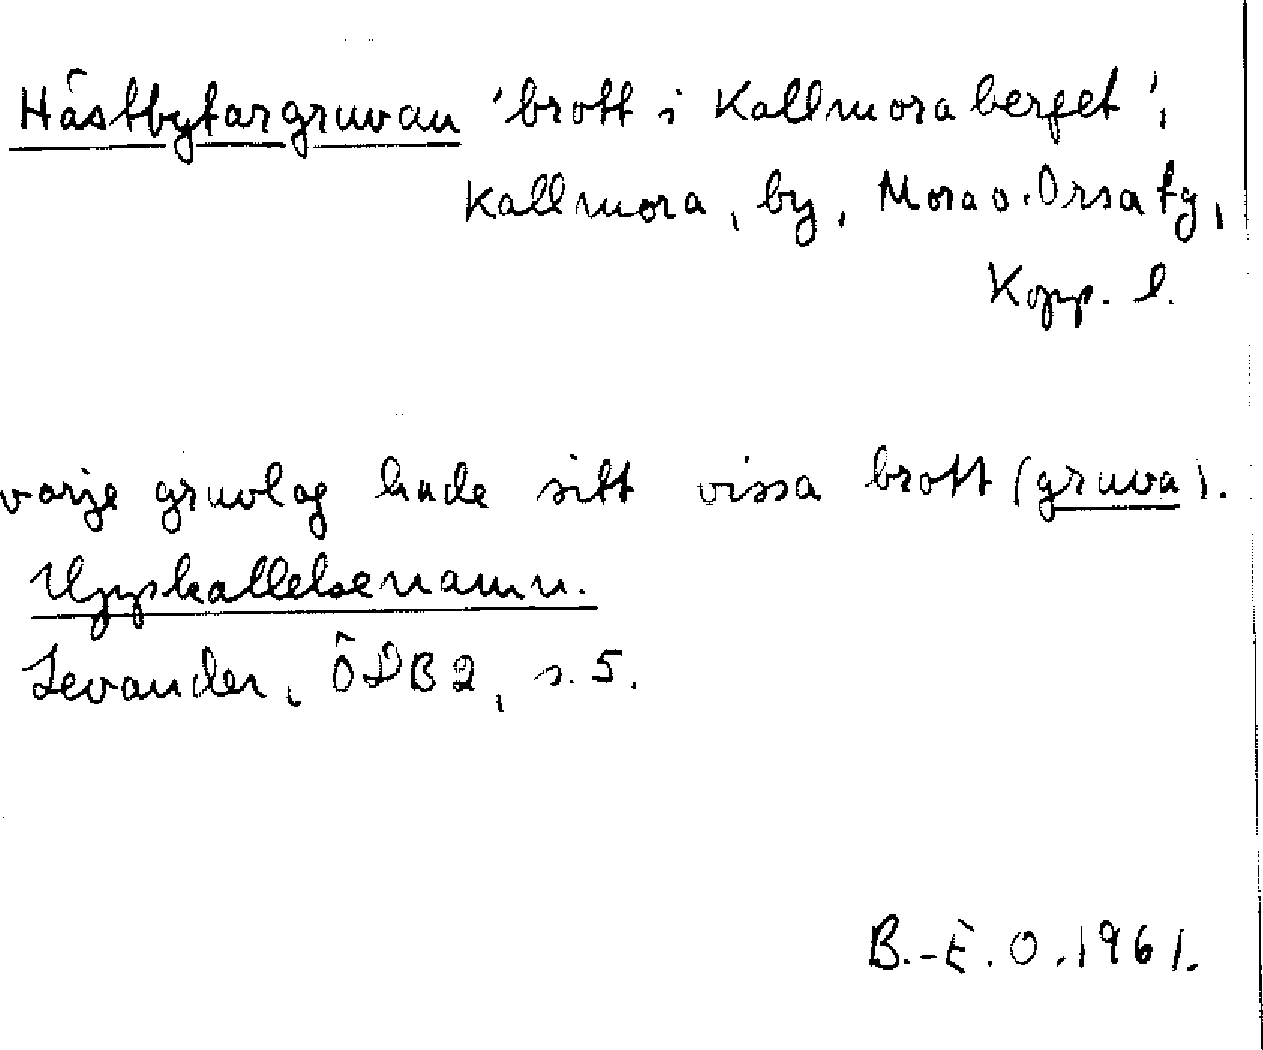 Hästbytargruvan 'brott i Kallmoraberget',
Kallmora, by, Mora o. Orsa tg,
Kopp. l.
varje gruvlag hade sitt vissa brott (gruva).
Uppkallelsenamn.
Levander, ÖDB 2, s. 5.
B.-E. O. 1961.